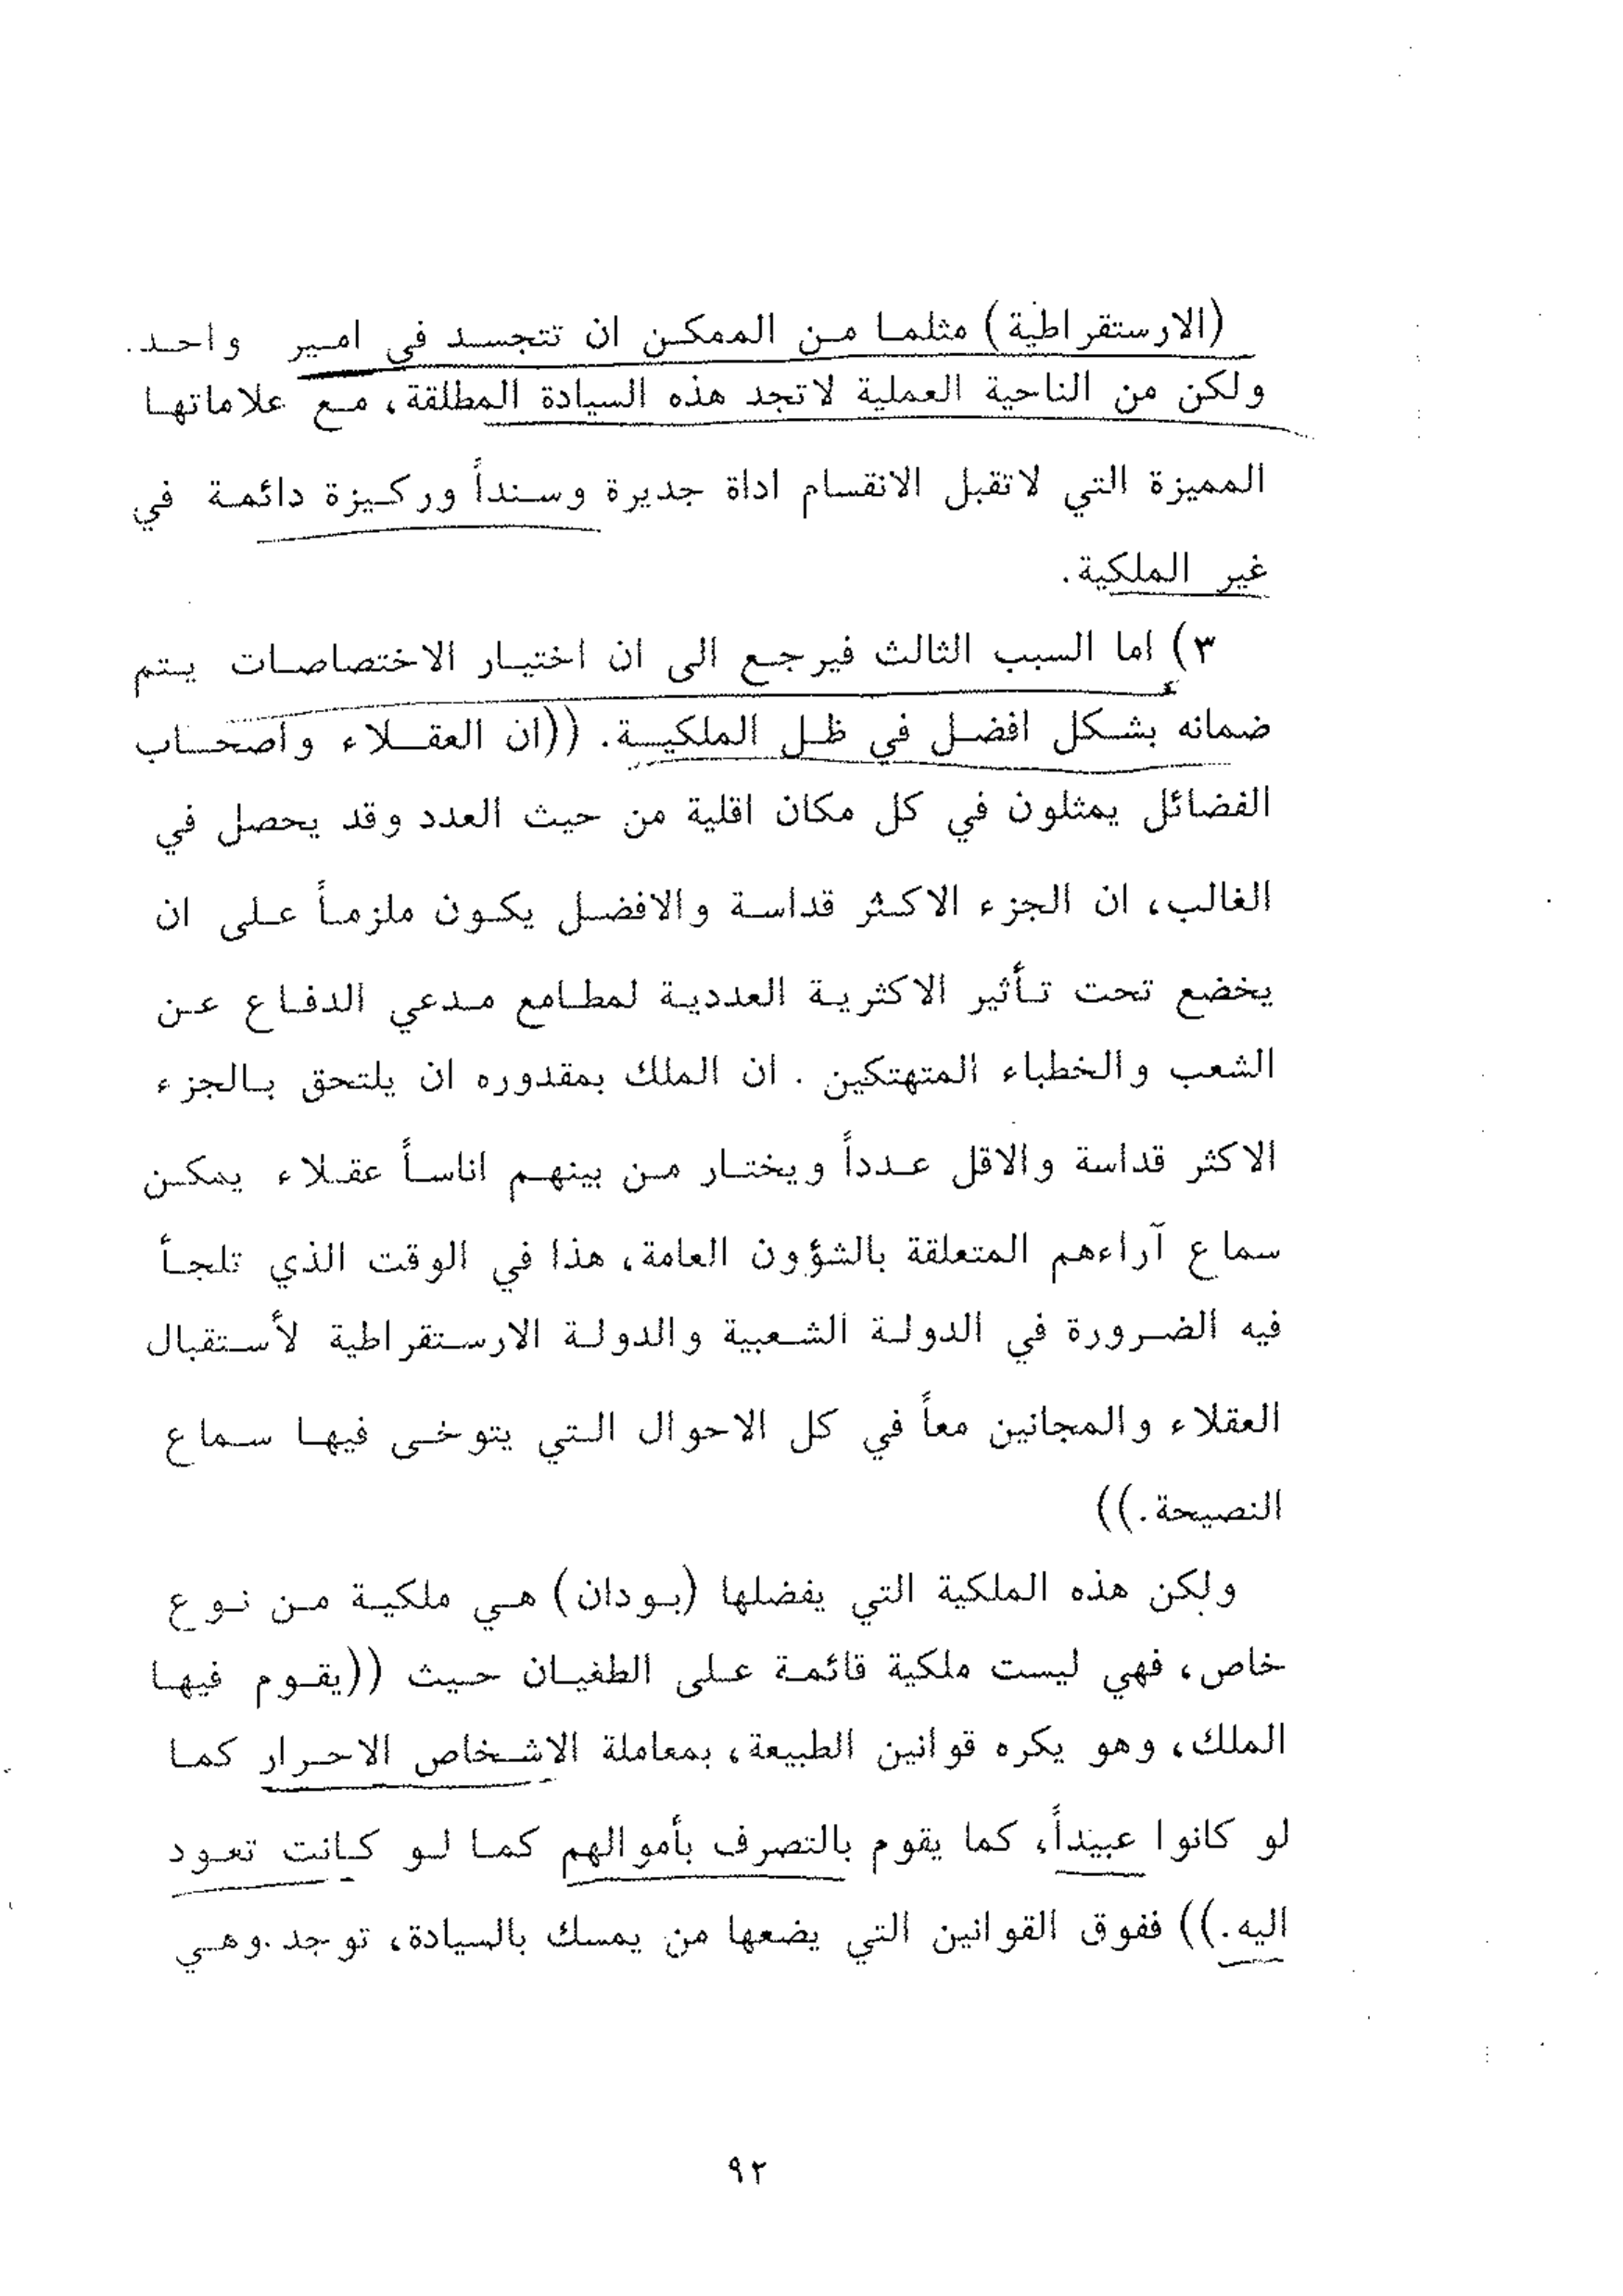 (الارستقراطية) مثلما من الممكن ان تتجسد في امير واحد.
ولكن من الناحية العملية لاتجد هذه السيادة المطلقة، مع علاماتها
المميزة التي لاتقبل الانقسام اداة جديرة وسنداً وركيزة دائمة في
غير الملكية.
٣) اما السبب الثالث فيرجع الى ان اختيار الاختصاصات يتم
ضمانه بشكل افضل في ظل الملكية. ((ان العقلاء واصحاب
الفضائل يمثلون في كل مكان اقلية من حيث العدد وقد يحصل في
الغالب، ان الجزء الاكثر قداسة والافضل يكون ملزماً على ان
يخضع تحت تأثير الاكثرية العددية لمطامع مدعي الدفاع عن
الشعب والخطباء المتهتكين . ان الملك بمقدوره ان يلتحق بالجزء
الاكثر قداسة والاقل عدداً ويختار من بينهم اناساً عقلاء يمكن
سماع آراءهم المتعلقة بالشؤون العامة، هذا في الوقت الذي تلجأ
فيه الضرورة في الدولة الشعبية والدولة الارستقراطية لأستقبال
العقلاء والمجانين معاً في كل الاحوال التي يتوخى فيها سماع
النصيحة.))
ولكن هذه الملكية التي يفضلها (بودان) هي ملكية من نوع
خاص، فهي ليست ملكية قائمة على الطغيان حيث ((يقوم فيها
الملك، وهو يكره قوانين الطبيعة، بمعاملة الاشخاص الاحرار كما
لو كانوا عبيداً، كما يقوم بالتصرف بأموالهم كما لو كانت تعود
اليه.)) ففوق القوانين التي يضعها من يمسك بالسيادة، توجد.وهي
٩٢